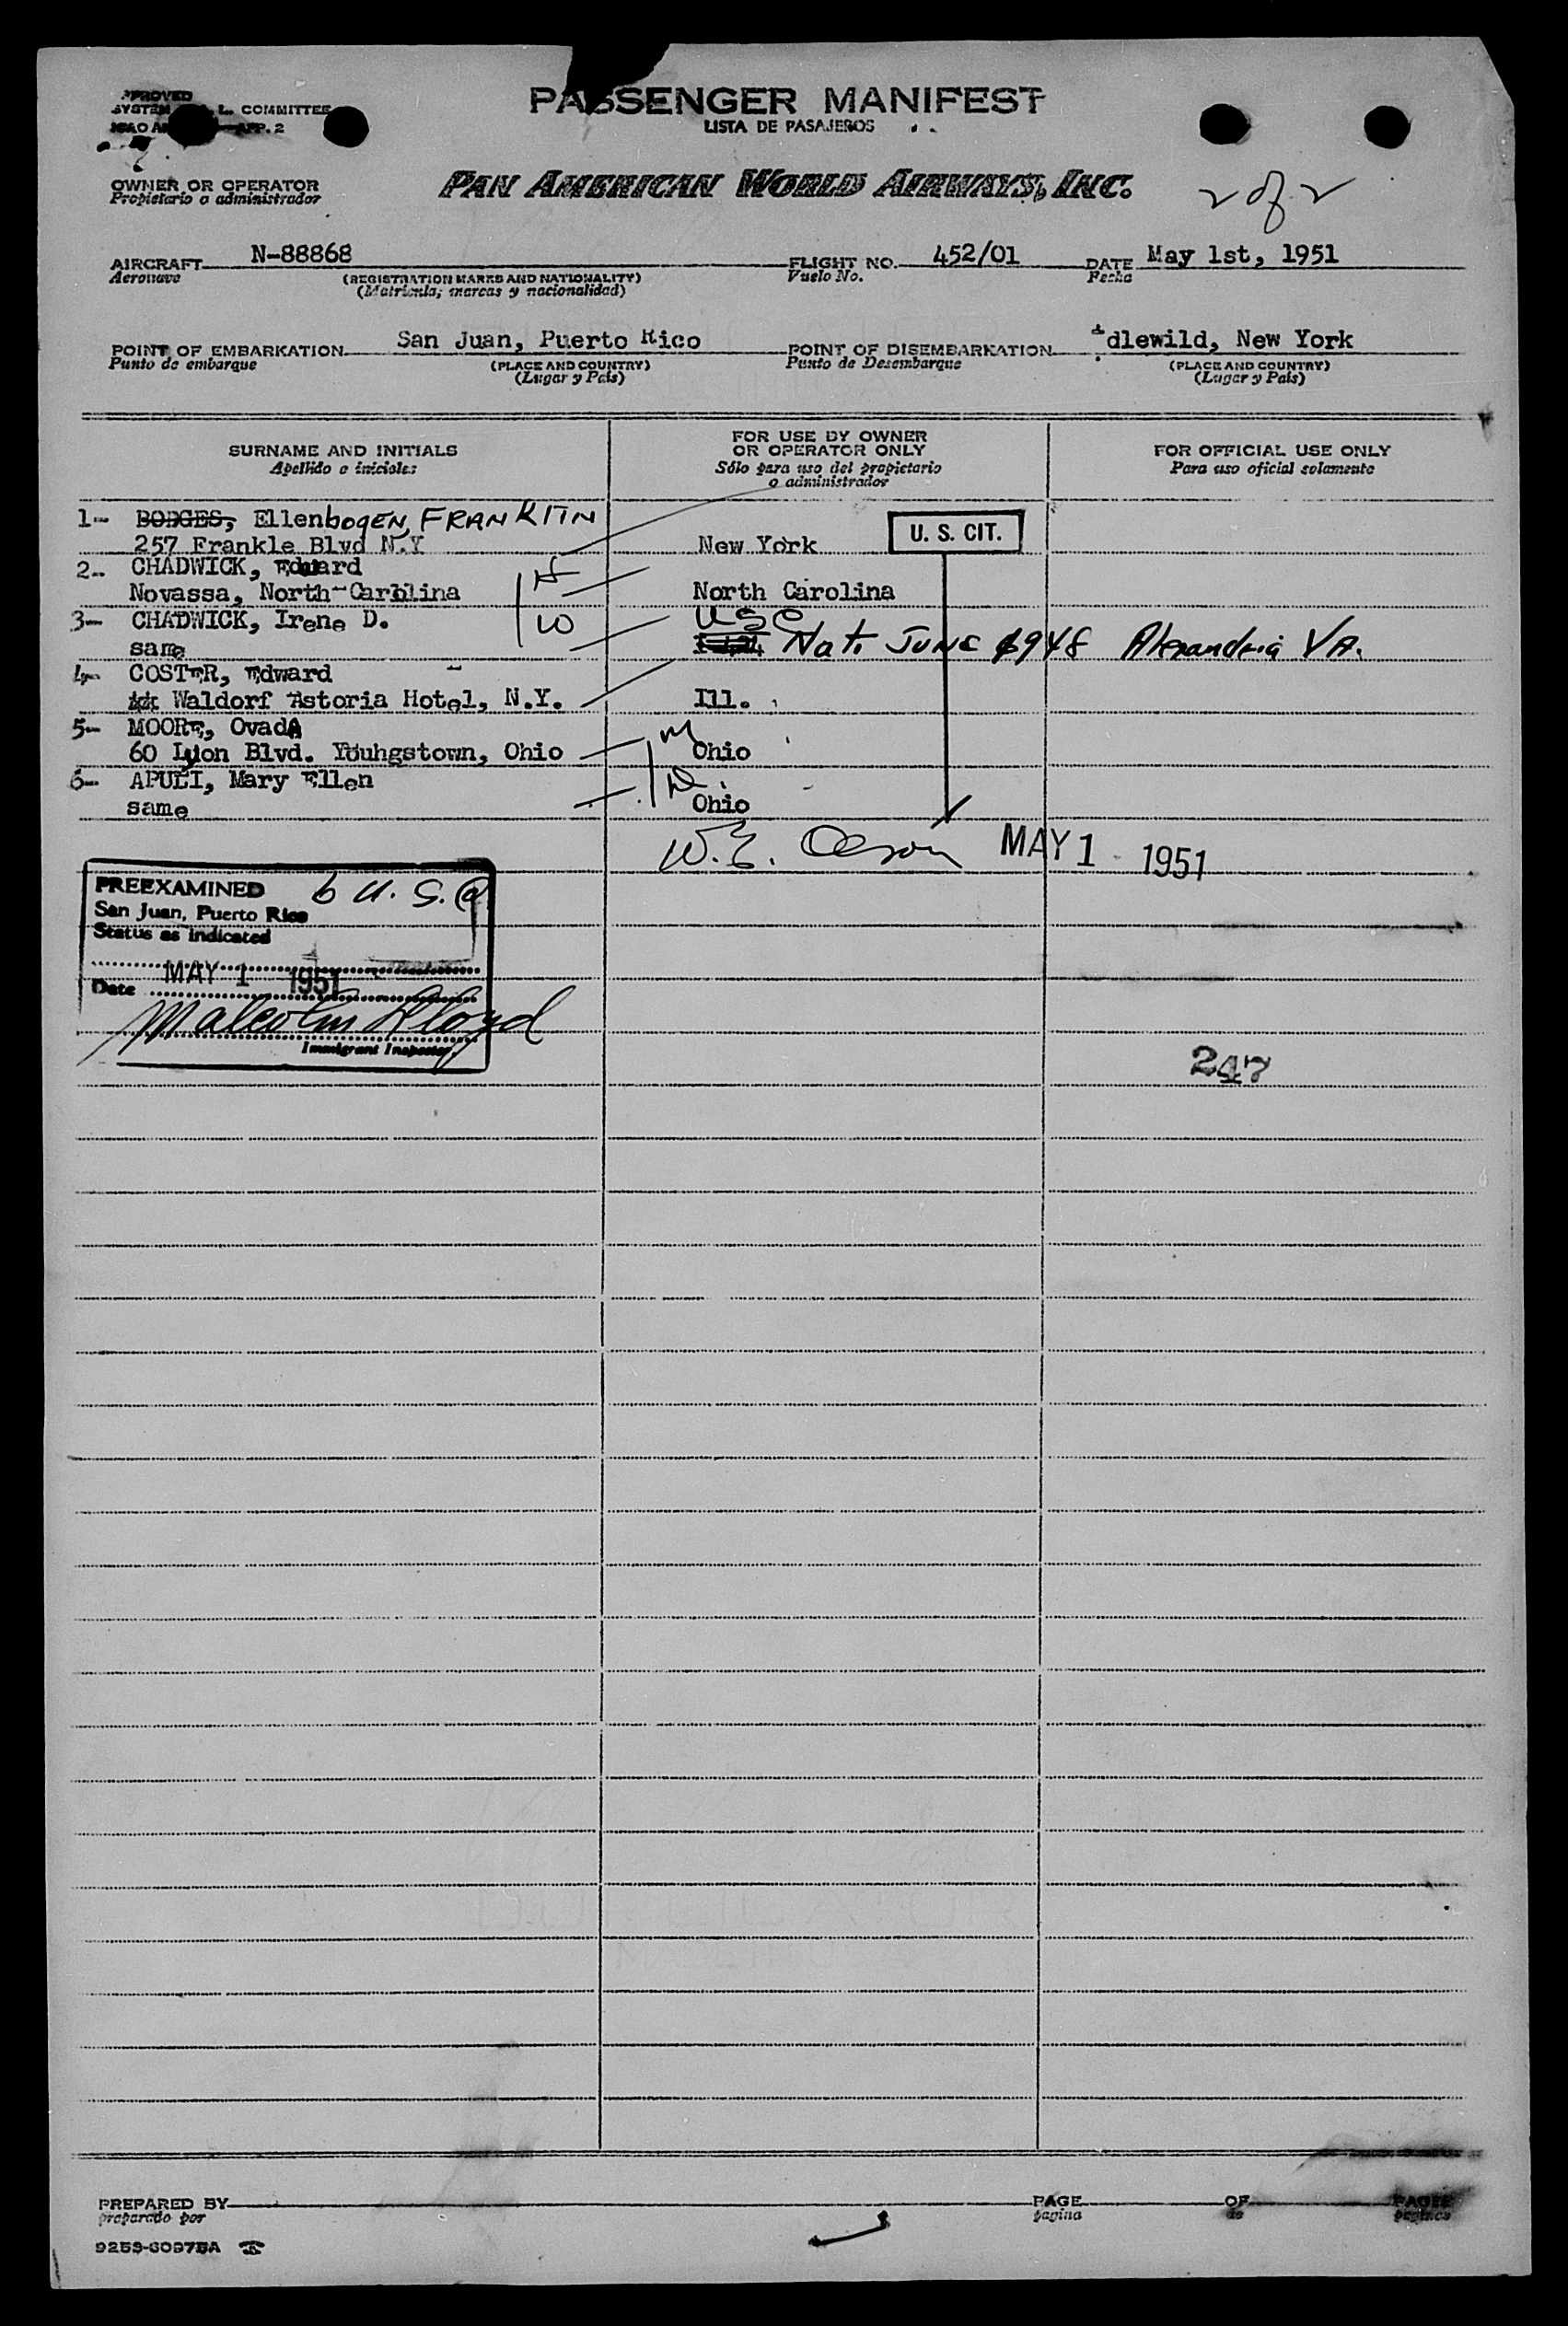 PASSENGER MANIFEST
LISTA DE PASAJEROS
COMMITTEE
APP. 2
OWNER OR OPERATOR
Propietario o administrador
PAN AMERICAN WORLD AIRWAYS, INC.
2 of 2
AIRCRAFT N-88868 FLIGHT NO. 452/01 DATE May 1st, 1951
Aeronave (REGISTRATION MARKS AND NATIONALITY) Vuelo No. Fecha
(Matrícula, marcas y nacionalidad)
POINT OF EMBARKATION San Juan, Puerto Rico POINT OF DISEMBARKATION Idlewild, New York
Punto de embarque (PLACE AND COUNTRY) Punto de Desembarque (PLACE AND COUNTRY)
(Lugar y País) (Lugar y País)
SURNAME AND INITIALS
Apellido e iniciales
FOR USE BY OWNER
OR OPERATOR ONLY
Sólo para uso del propietario
o administrador
FOR OFFICIAL USE ONLY
Para uso oficial solamente
1- BODGES, Ellenbogen, FRANKLIN
257 Frankle Blvd N.Y New York U. S. CIT.
2- CHADWICK, Edward
Novassa, North Carolina North Carolina
3- CHADWICK, Irene D. USC
same Nat. JUNE 1948 Alexandria VA.
4- COSTER, Edward
Waldorf Astoria Hotel, N.Y. Ill.
5- MOORE, OvadA M
60 Lyon Blvd. Youhgstown, Ohio Ohio
6- APULI, Mary Ellen
same Ohio
W.E. Olson MAY 1 1951
PREEXAMINED 6 U.S.C
San Juan, Puerto Rico
Status as indicated
Date MAY 1 1951
Malcolm Lloyd
Immigrant Inspector
247
PREPARED BY PAGE OF PAGES
preparado por pagina de paginas
9253-60975A